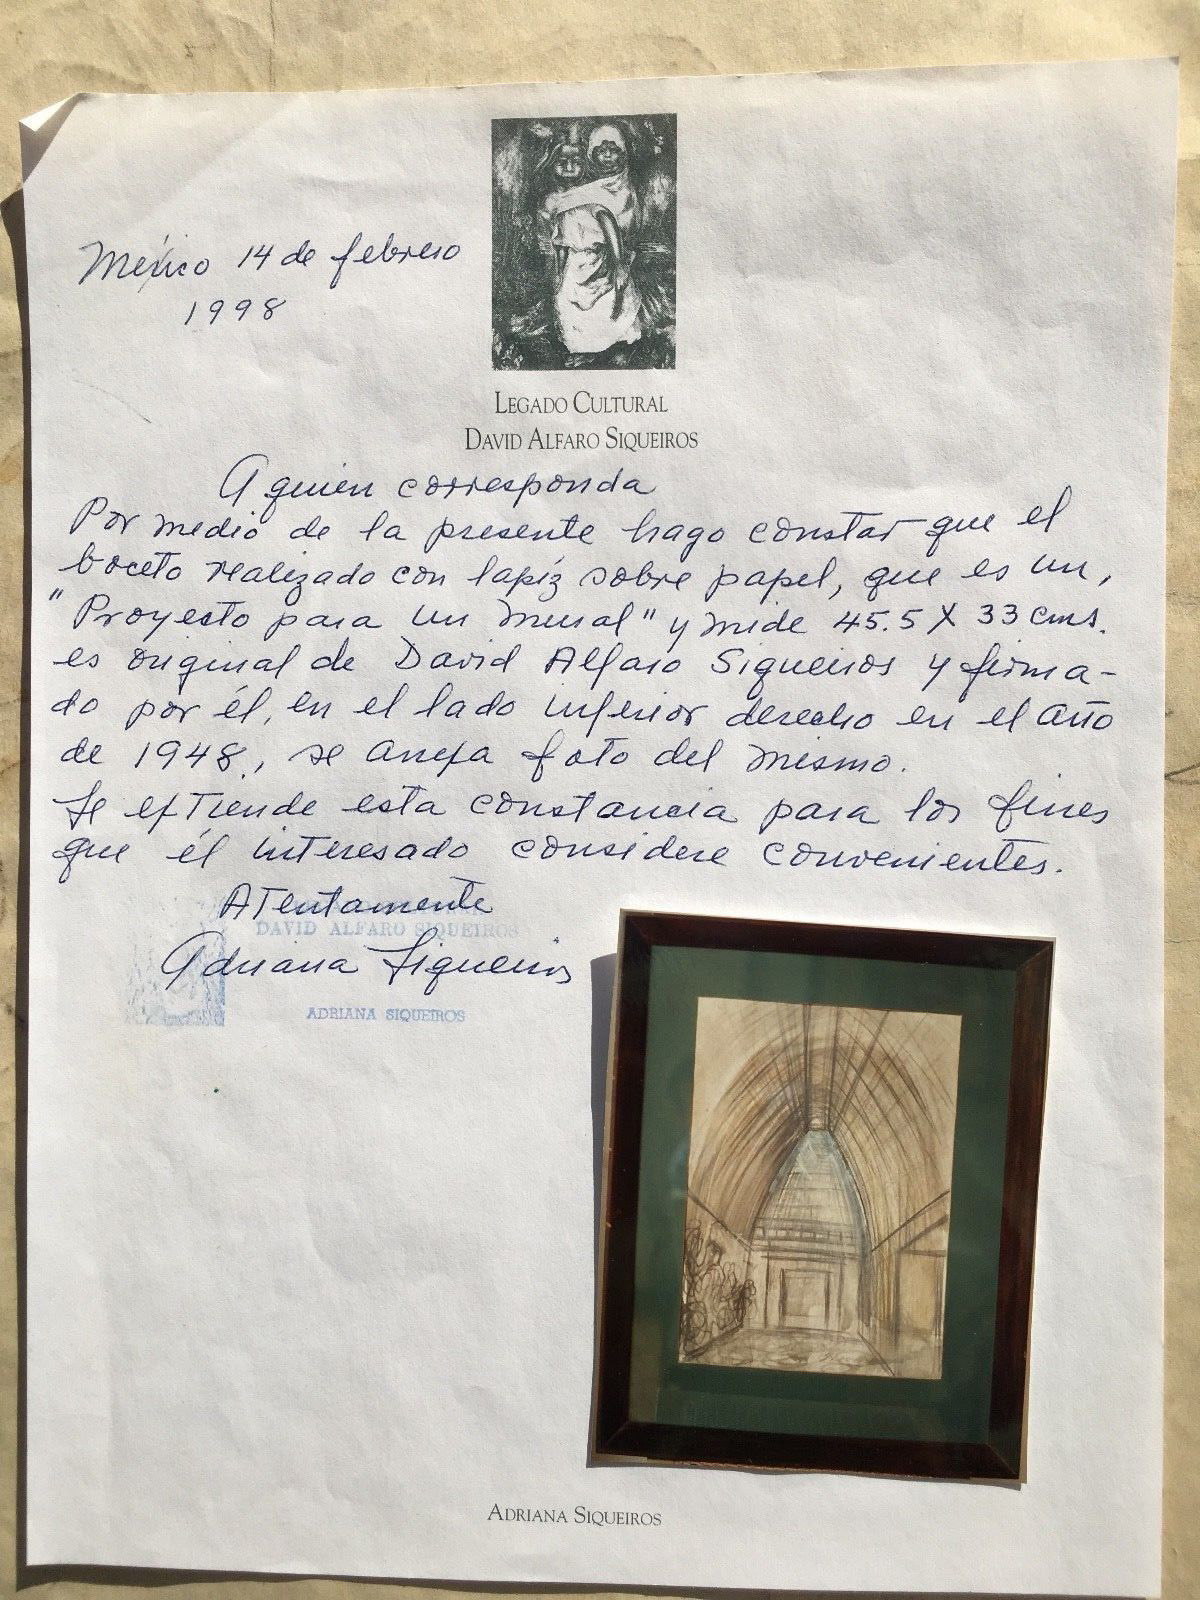 México 14 de febrero
1998
LEGADO CULTURAL
DAVID ALFARO SIQUEIROS
A quien corresponda
Por medio de la presente hago constar que el
boceto realizado con lapíz sobre papel, que es un,
"Proyecto para un mural" y mide 45.5 X 33 cms.
es original de David Alfaro Siqueiros y firma-
do por él, en el lado inferior derecho en el año
de 1948., se anexa foto del mismo.
Se extiende esta constancia para los fines
que él interesado considere convenientes.
Atentamente
DAVID ALFARO SIQUEIROS
Adriana Siqueiros
ADRIANA SIQUEIROS
ADRIANA SIQUEIROS